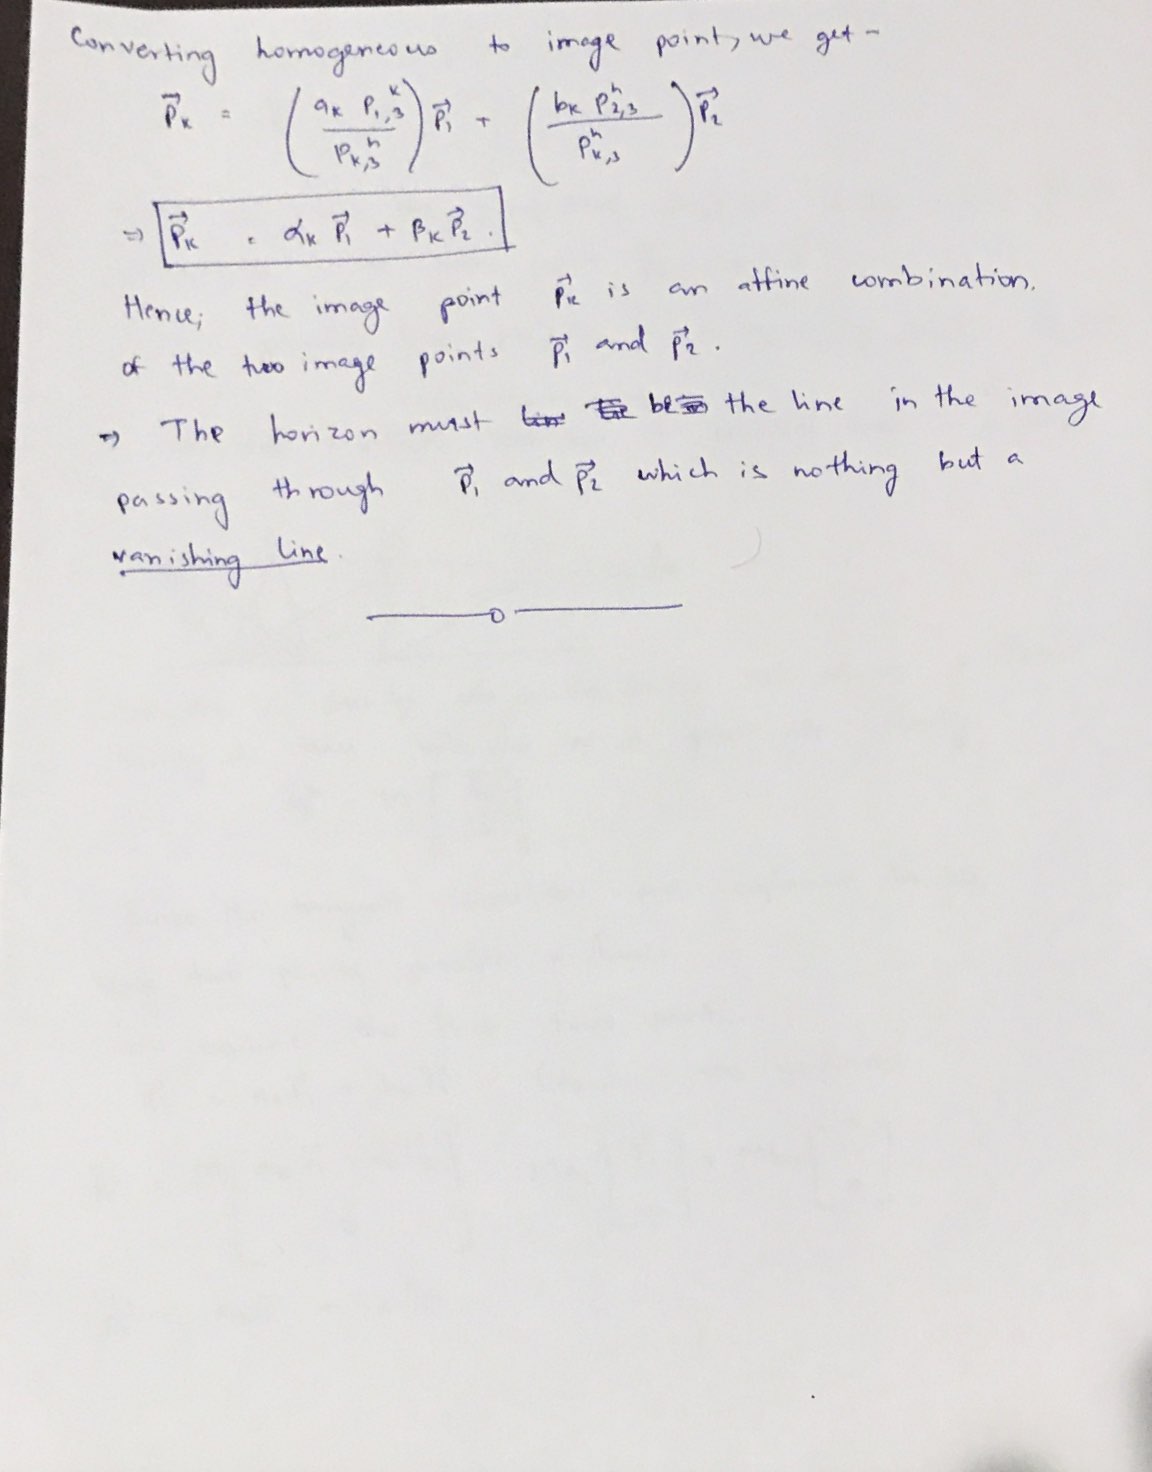 Converting homogeneous to image point, we get -
P⃗k = (ak P1,3^k / Pk,3^h) P⃗1 + (bk P2,3^h / Pk,3^h) P⃗2
⇒ P⃗k = αk P⃗1 + βk P⃗2 .
Hence; the image point P⃗k is an affine combination.
of the two image points P⃗1 and P⃗2 .
⇒ The horizon must be the line in the image
passing through P⃗1 and P⃗2 which is nothing but a
vanishing line.